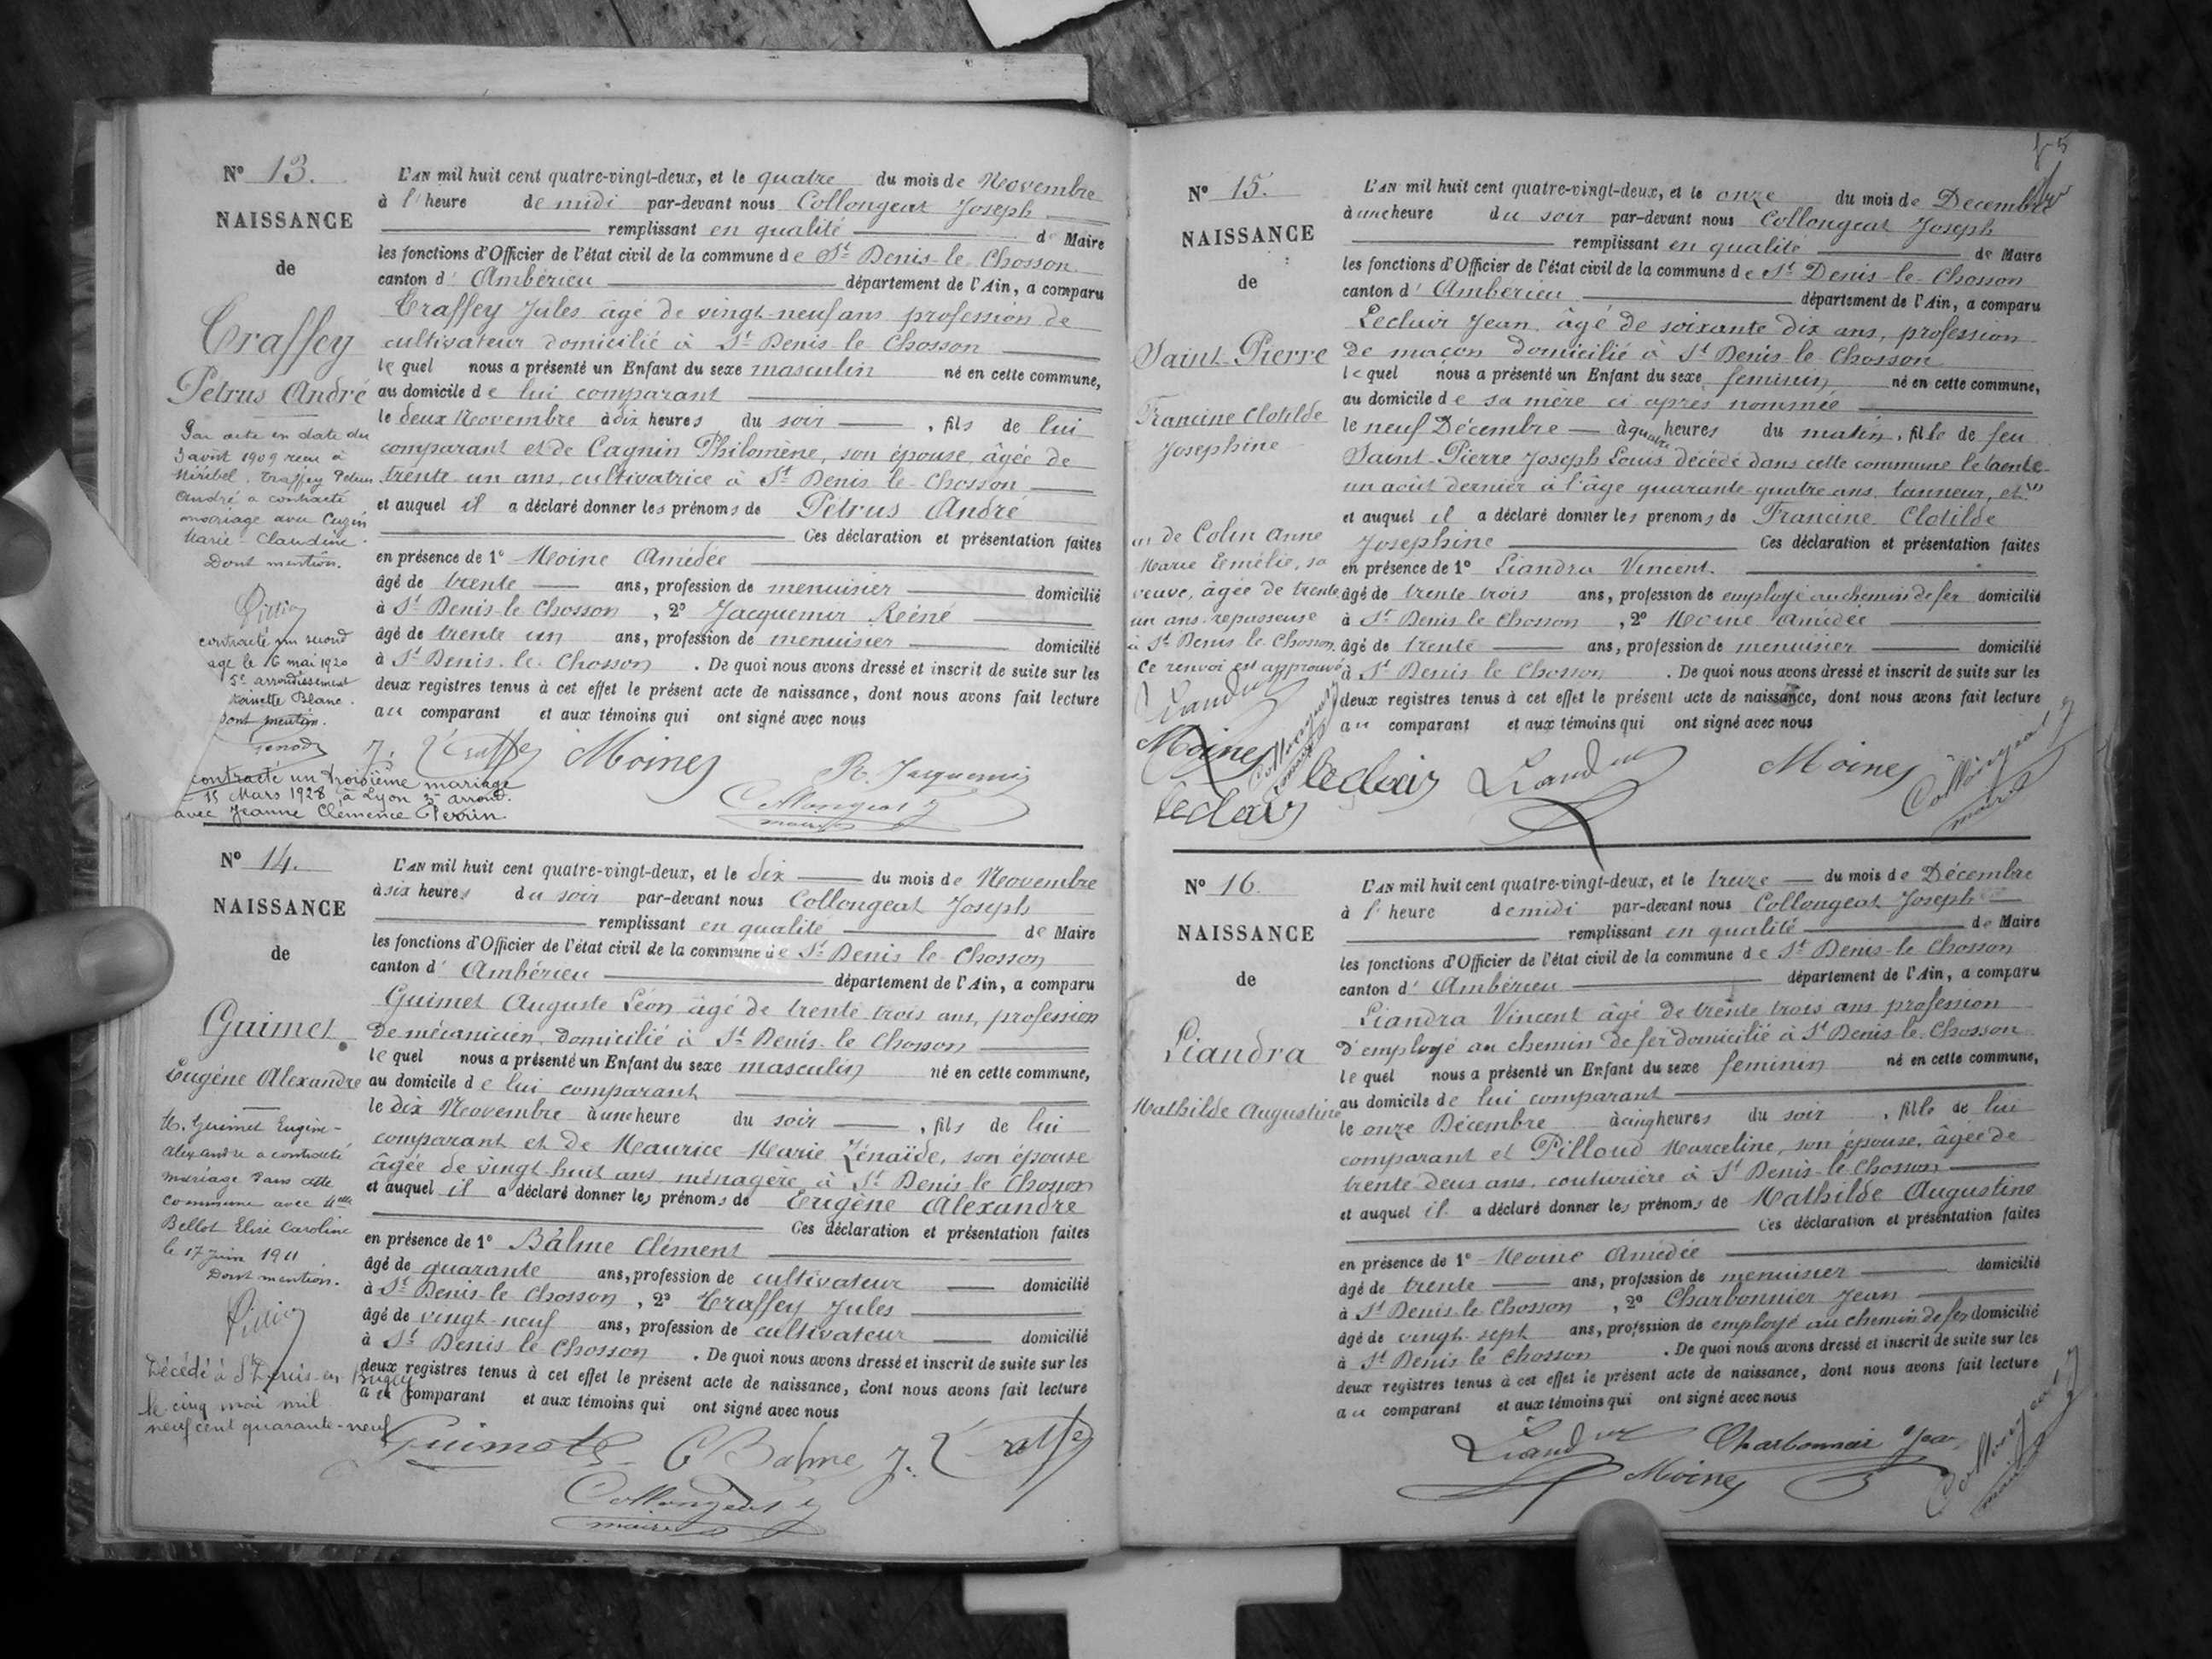 N° 13.
NAISSANCE
de
Traffey
Petrus André
Par acte en date du
3 avril 1909 recu à
Miribel, Traffey Petrus
André a contracté
mariage avec Cuzin
Marie-Claudine.
Dont mention.
contracté un second
age le 6 mai 1920
5e arrondissement
Blanc.
Dont mention.
contracté un troisième mariage
15 Mars 1928, à Lyon 3e arrond.
avec Jeanne Clémence Perrin
L'AN mil huit cent quatre-vingt-deux, et le quatre du mois de Novembre
à l'heure de midi par-devant nous Collongeat Joseph
remplissant en qualité de Maire
les fonctions d'Officier de l'état civil de la commune de St Denis-le-Chosson
canton d'Ambérieu département de l'Ain, a comparu
Traffey Jules âgé de vingt-neuf ans profession de
cultivateur domicilié à St Denis-le-Chosson
lequel nous a présenté un Enfant du sexe masculin né en cette commune,
au domicile de lui comparant
le deux Novembre à dix heures du soir, fils de lui
comparant et de Cagnin Philomène, son épouse, âgée de
trente-un ans, cultivatrice à St Denis-le-Chosson
et auquel il a déclaré donner les prénoms de Pétrus André
Ces déclaration et présentation faites
en présence de 1° Moine Amédée
âgé de trente ans, profession de menuisier domicilié
à St Denis-le-Chosson, 2° Jacquemir Réené
âgé de trente un ans, profession de menuisier domicilié
à St Denis-le-Chosson. De quoi nous avons dressé et inscrit de suite sur les
deux registres tenus à cet effet le présent acte de naissance, dont nous avons fait lecture
au comparant et aux témoins qui ont signé avec nous
J. Traffey Moine R. Jacquemir
Collongeat J
maire
N° 14.
NAISSANCE
de
Guimet
Eugène Alexandre
Mr. Guimet Eugène-
Alexandre a contracté
mariage dans cette
commune avec Melle
Bellot Elise Caroline
le 17 juin 1911
Dont mention.
Décédé à St Denis-en-Bugey
le cinq mai mil
neuf cent quarante-neuf
L'AN mil huit cent quatre-vingt-deux, et le dix du mois de Novembre
à six heures du soir par-devant nous Collongeat Joseph
remplissant en qualité de Maire
les fonctions d'Officier de l'état civil de la commune de St Denis-le-Chosson
canton d'Ambérieu département de l'Ain, a comparu
Guimet Auguste Léon âgé de trente-trois ans, profession
de mécanicien, domicilié à St Denis-le-Chosson
lequel nous a présenté un Enfant du sexe masculin né en cette commune,
au domicile de lui comparant
le dix Novembre à une heure du soir, fils de lui
comparant et de Maurice Marie Zénaïde, son épouse
âgée de vingt-huit ans, ménagère, à St Denis-le-Chosson
et auquel il a déclaré donner les prénoms de Eugène Alexandre
Ces déclaration et présentation faites
en présence de 1° Balme Clément
âgé de quarante ans, profession de cultivateur domicilié
à St Denis-le-Chosson, 2° Traffey Jules
âgé de vingt-neuf ans, profession de cultivateur domicilié
à St Denis-le-Chosson. De quoi nous avons dressé et inscrit de suite sur les
deux registres tenus à cet effet le présent acte de naissance, dont nous avons fait lecture
au comparant et aux témoins qui ont signé avec nous
Guimet C Balme J. Traffey
Collongeat J
maire
N° 15.
NAISSANCE
de
Saint-Pierre
Francine Clotilde
Josephine
de Colin Anne
Marie Emélie, sa
veuve, âgée de trente
un ans, repasseuse
à St Denis-le-Chosson
Ce renvoi est approuvé
Liandra
Moine
Collongeat J
maire
Leclair
L'AN mil huit cent quatre-vingt-deux, et le onze du mois de Decembre
à une heure du soir par-devant nous Collongeat Joseph
remplissant en qualité de Maire
les fonctions d'Officier de l'état civil de la commune de St Denis-le-Chosson
canton d'Ambérieu département de l'Ain, a comparu
Leclair Jean, âgé de soixante dix ans, profession
de maçon domicilié à St Denis-le-Chosson
lequel nous a présenté un Enfant du sexe feminin né en cette commune,
au domicile de sa mère ci après nommée
le neuf Décembre à quatre heures du matin, fille de feu
Saint-Pierre Joseph Louis décédé dans cette commune le trente-
un août dernier à l'âge quarante quatre ans, tanneur, et
et auquel il a déclaré donner les prénoms de Francine Clotilde
Josephine Ces déclaration et présentation faites
en présence de 1° Liandra Vincent.
âgé de trente trois ans, profession de employé au chemin de fer domicilié
à St Denis-le-Chosson, 2° Moine Amédée
âgé de trente ans, profession de menuisier domicilié
à St Denis le Chosson. De quoi nous avons dressé et inscrit de suite sur les
deux registres tenus à cet effet le présent acte de naissance, dont nous avons fait lecture
au comparant et aux témoins qui ont signé avec nous
Leclair Liandra Moine Collongeat J
maire
N° 16.
NAISSANCE
de
Liandra
Mathilde Augustine
L'AN mil huit cent quatre-vingt-deux, et le treize du mois de Décembre
à l'heure de midi par-devant nous Collongeat Joseph
remplissant en qualité de Maire
les fonctions d'Officier de l'état civil de la commune de St Denis-le-Chosson
canton d'Ambérieu département de l'Ain, a comparu
Liandra Vincent âgé de trente trois ans profession
d'employé au chemin de fer domicilié à St Denis-le-Chosson
lequel nous a présenté un Enfant du sexe feminin né en cette commune,
au domicile de lui comparant
le onze Décembre à cinq heures du soir, fille de lui
comparant et Pilloud Marceline, son épouse, âgée de
trente-deux ans, couturière à St Denis-le-Chosson
et auquel il a déclaré donner les prénoms de Mathilde Augustine
Ces déclaration et présentation faites
en présence de 1° Moine Amédée
âgé de trente ans, profession de menuisier domicilié
à St Denis-le-Chosson, 2° Charbonnier Jean
âgé de vingt-sept ans, profession de employé au chemin de fer domicilié
à St Denis-le-Chosson. De quoi nous avons dressé et inscrit de suite sur les
deux registres tenus à cet effet le présent acte de naissance, dont nous avons fait lecture
au comparant et aux témoins qui ont signé avec nous
Liandra Charbonnier Jean
Moine Collongeat J
maire